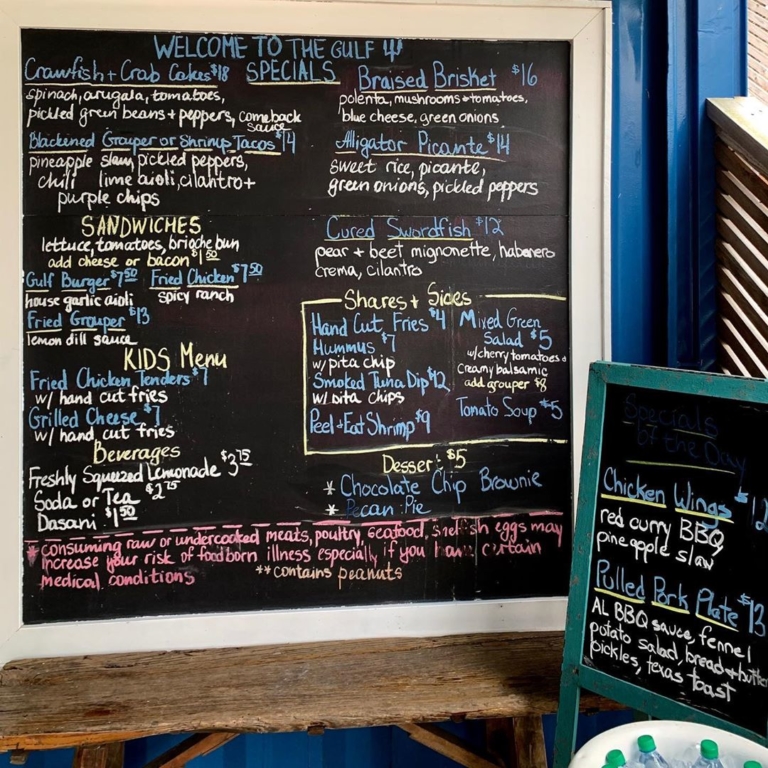 WELCOME TO THE GULF
SPECIALS
Crawfish + Crab Cakes $18
spinach, arugala, tomatoes,
pickled green beans + peppers, comeback
sauce
Blackened Grouper or Shrimp Tacos $14
pineapple slaw, pickled peppers,
chili lime aioli, cilantro +
purple chips
Braised Brisket $16
polenta, mushrooms + tomatoes,
blue cheese, green onions
Alligator Picante $14
sweet rice, picante,
green onions, pickled peppers
Cured Swordfish $12
pear + beet mignonette, habanero
crema, cilantro
SANDWICHES
lettuce, tomatoes, brioche bun
add cheese or bacon $1.50
Gulf Burger $7.50
house garlic aioli
Fried Chicken $7.50
spicy ranch
Fried Grouper $13
lemon dill sauce
KIDS Menu
Fried Chicken Tenders $7
w/ hand cut fries
Grilled Cheese $7
w/ hand cut fries
Beverages
Freshly Squeezed Lemonade $3.75
Soda or Tea $2.75
Dasani $1.50
Shares + Sides
Hand Cut Fries $4
Hummus $7
w/ pita chip
Smoked Tuna Dip $12
w/ pita chips
Peel + Eat Shrimp $9
Mixed Green
Salad $5
w/ cherry tomatoes +
creamy balsamic
add grouper $8
Tomato Soup $5
Dessert $5
* Chocolate Chip Brownie
* Pecan Pie
* consuming raw or undercooked meats, poultry, seafood, shellfish eggs may
increase your risk of foodborn illness especially if you have certain
medical conditions
**contains peanuts
Specials
of the Day
Chicken Wings $12
red curry BBQ
pineapple slaw
Pulled Pork Plate $13
AL BBQ sauce, fennel
potato salad, bread + butter
pickles, texas toast